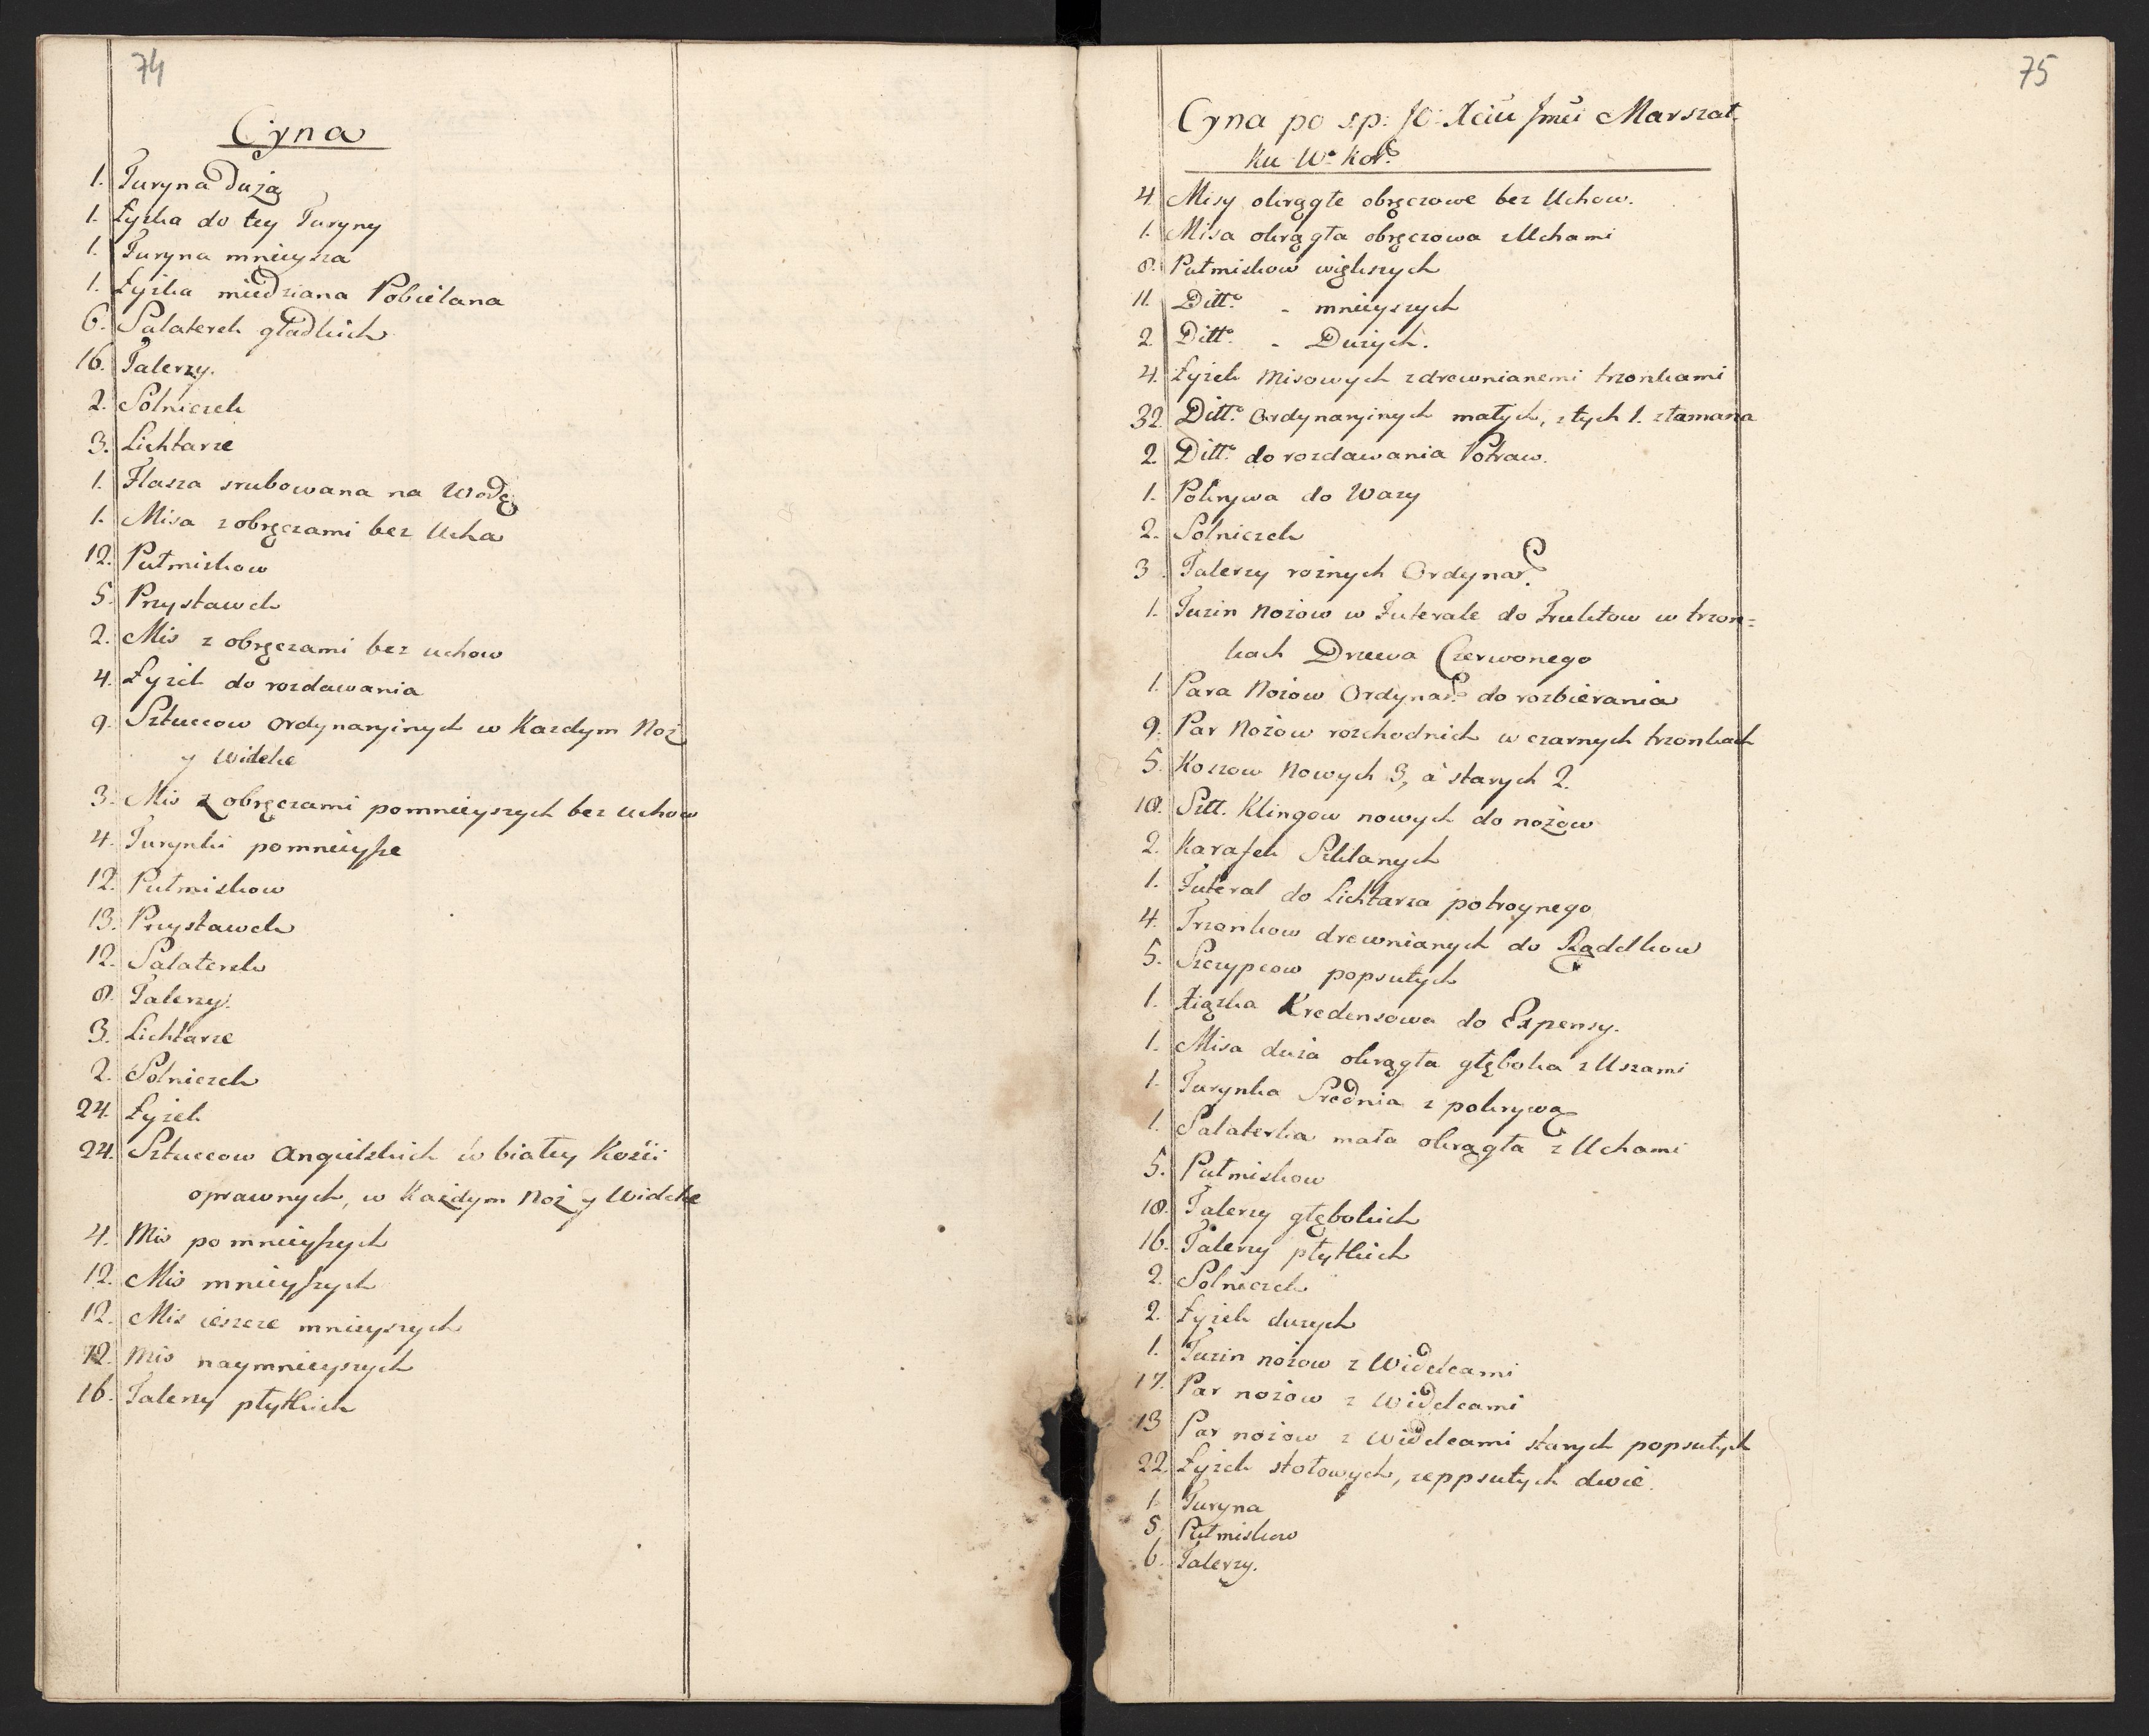 74
Cyna
1. Turyna Duża
1. Łyżka do tey Turyny
1. Turyna mnieysza
1. Łyżka miedziana Pobielana
6. Salaterek gładkich
16. Talerzy.
2. Solniczek
3. Lichtarze
1. Flasza srubowana na Wodę
1. Misa z obręczami bez Ucha
12. Putmiskow
5. Przystawek
2. Mis z obręczami bez uchow
4. Łyżek do rozdawania
9. Sztuccow ordynaryinych w Kazdym Noż
y Widelce
3. Mis z obręczami pomnieyszych bez uchow
4. Turynki pomnieysze
12. Putmiskow
13. Przystawek
12. Salaterek
8. Talerzy.
3. Lichtarze
2. Solniczek
24. Łyżek
24. Sztuccow Angielskich w białey Kości
oprawnych, w Każdym Noż y Widelce
4. Mis pomnieyszych
12. Mis mnieyszych
12. Mis ieszcze mnieyszych
12. Mis naymnieyszych
16. Talerzy płytkich
75
Cyna po sp: JO: Xciu Jmci Marszał-
ku W: Kor:
4. Misy okrągłe obręczowe bez Uchow.
1. Misa okrągła obręczowa z Uchami
8. Putmiskow większych
11. Ditto - mnieyszych
2 Ditto - Dużych.
4. Łyżek Misowych z drewnianemi trzonkami
32 Ditto Ordynaryinych małych, z tych 1. złamana
2. Ditto do rozdawania Potraw.
1. Pokrywa do Wazy
2. Solniczek
3. Talerzy rożnych Ordynar:
1. Tuzin Nożow w Futerale do Fruktow w trzon=
kach Drzewa Czerwonego
1. Para Nożow Ordynar: do rozbierania
9. Par Nożow rozchodnich w czarnych trzonkach
5. Koszow Nowych 3, a starych 2.
18. Szt. Klingow nowych do nożow
2. Karafek Szklanych
1. Futerał do Lichtarza potroynego
4. Trzonkow drewnianych do Rądelkow
5. Szczypcow popsutych
1. Xiążka Kredensowa do Expensy.
1. Misa duża okrągła głęboka z Uszami
1. Turynka Srednia z pokrywą
1. Salaterka mała okrągła z Uchami
5. Putmiskow
18. Talerzy głębokich
16. Talerzy płytkich
2. Solniczek
2. Łyżek dużych
1. Tuzin nożow z Widelcami
17. Par nożow z Widelcami
13 Par nożow z Widelcami starych popsutych
22. Łyżek stołowych, zeppsutych dwie.
1. Turyna
5. Putmiskow
6. Talerzy.